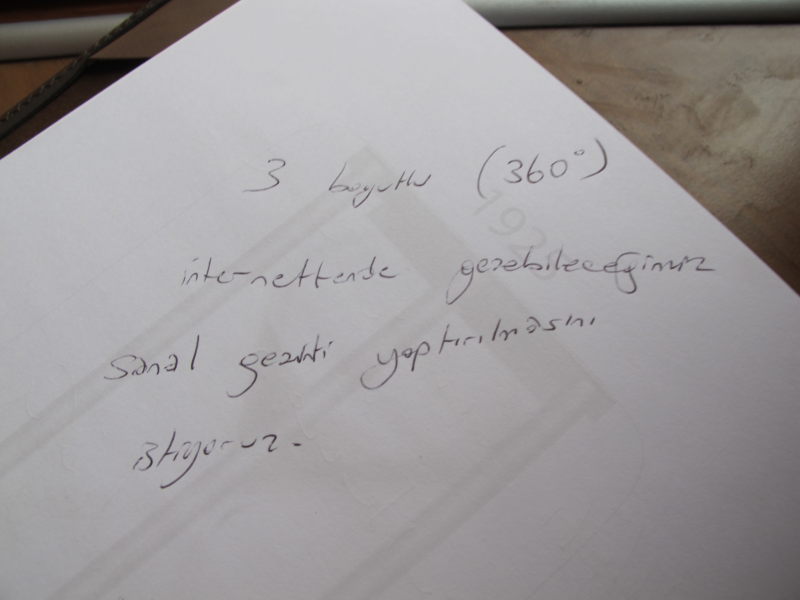 3 boyutlu (360°)
internettende gezebileceğimiz
sanal gezinti yaptırılmasını
istiyoruz.